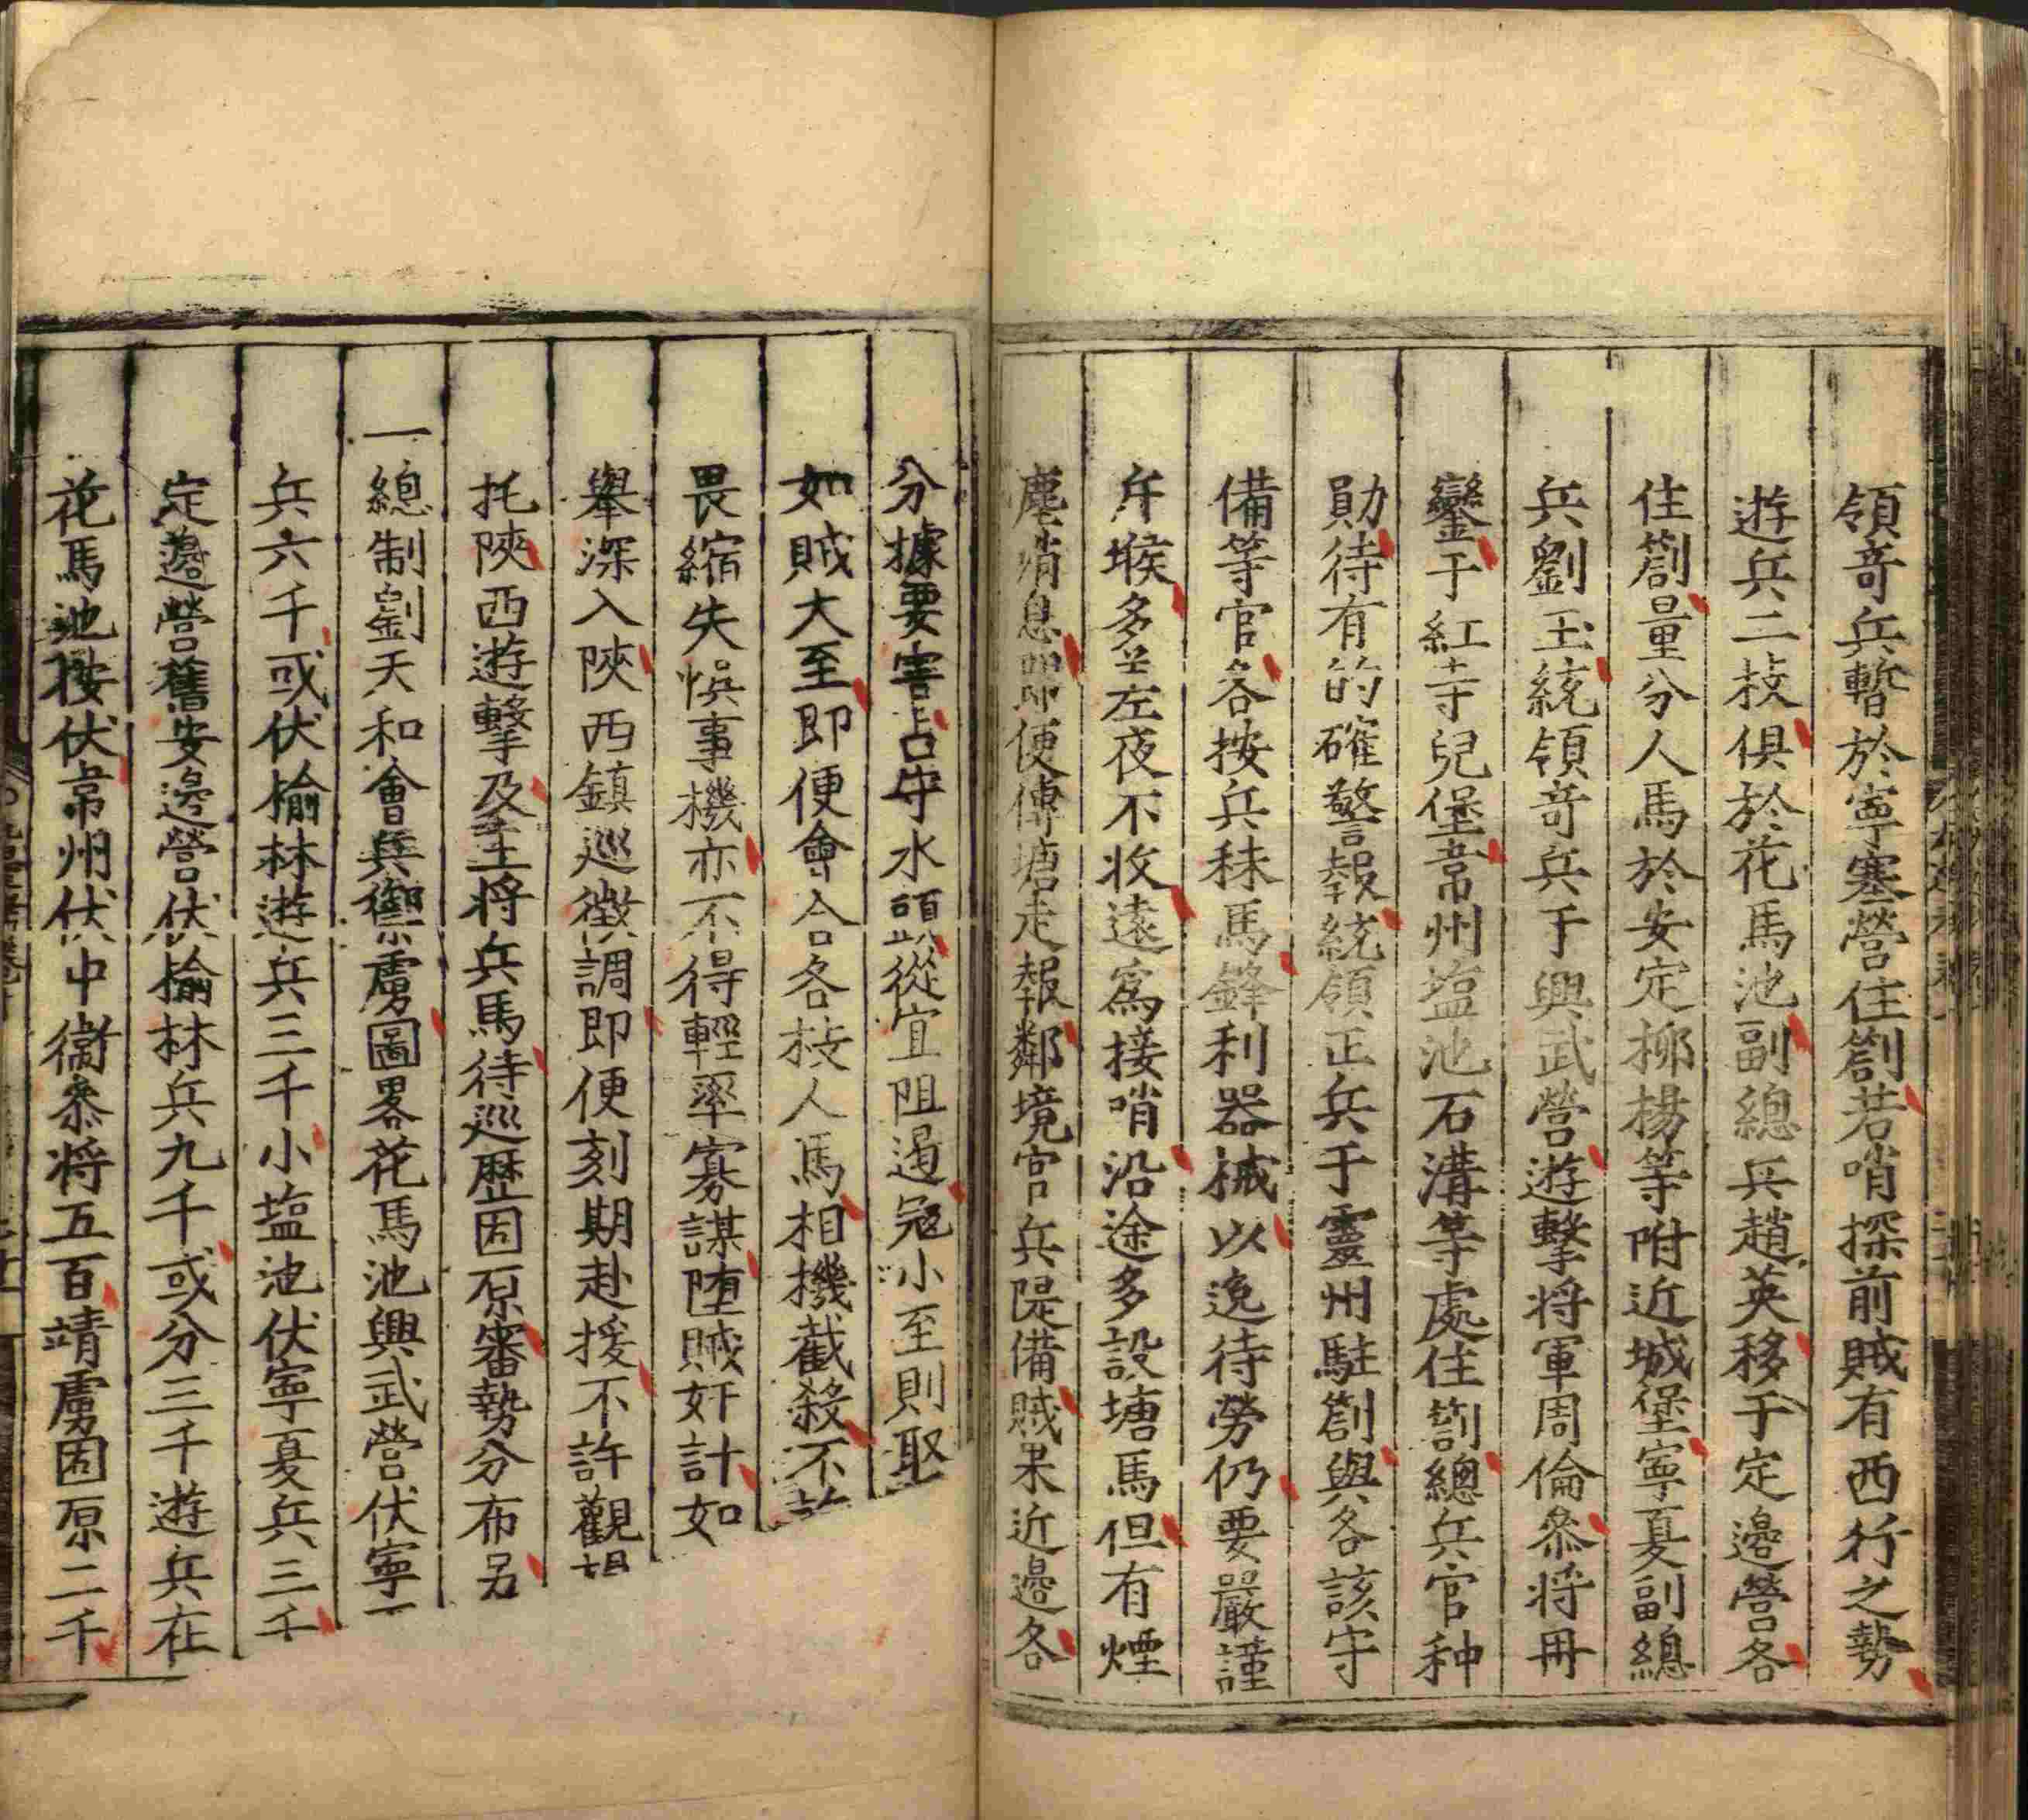 領竒兵暫於寧塞營住劄若哨探前賊有西行之勢
遊兵二枝俱於花馬池副總兵趙英移于定邊營各
住劄量分人馬於安定柳楊等附近城堡寧夏副總
兵劉玉統領竒兵于興武營遊擊將軍周倫叅將冉
鑾于紅寺兒堡韋州塩池石溝等處住劄總兵官种
勛待有的確警報統領正兵于靈州駐劄與各該守
備等官各按兵秣馬鋒利器械以逸待勞仍要嚴謹
斥堠多差夜不收遠為接哨沿途多設塘馬但有煙
塵消息即便傳塘走報鄰境官兵隄備賊果近邊各
分據要害占守水頭從宜阻遏寇小至則聚
如賊大至即便會合各枝人馬相機截殺不
畏縮失悞事機亦不得輕率寡謀堕賊奸計如
舉深入陝西鎮巡徵調即便刻期赴援不許觀
托陝西遊擊及主將兵馬待巡歷固原審勢分布另
一總制劉天和會兵禦虜圖畧花馬池興武營伏寧
兵六千或伏榆林遊兵三千小塩池伏寧夏兵三千
定邊營舊安邊營伏榆林兵九千或分三千遊兵在
花馬池按伏韋州伏中衛叅將五百靖虜固原二千